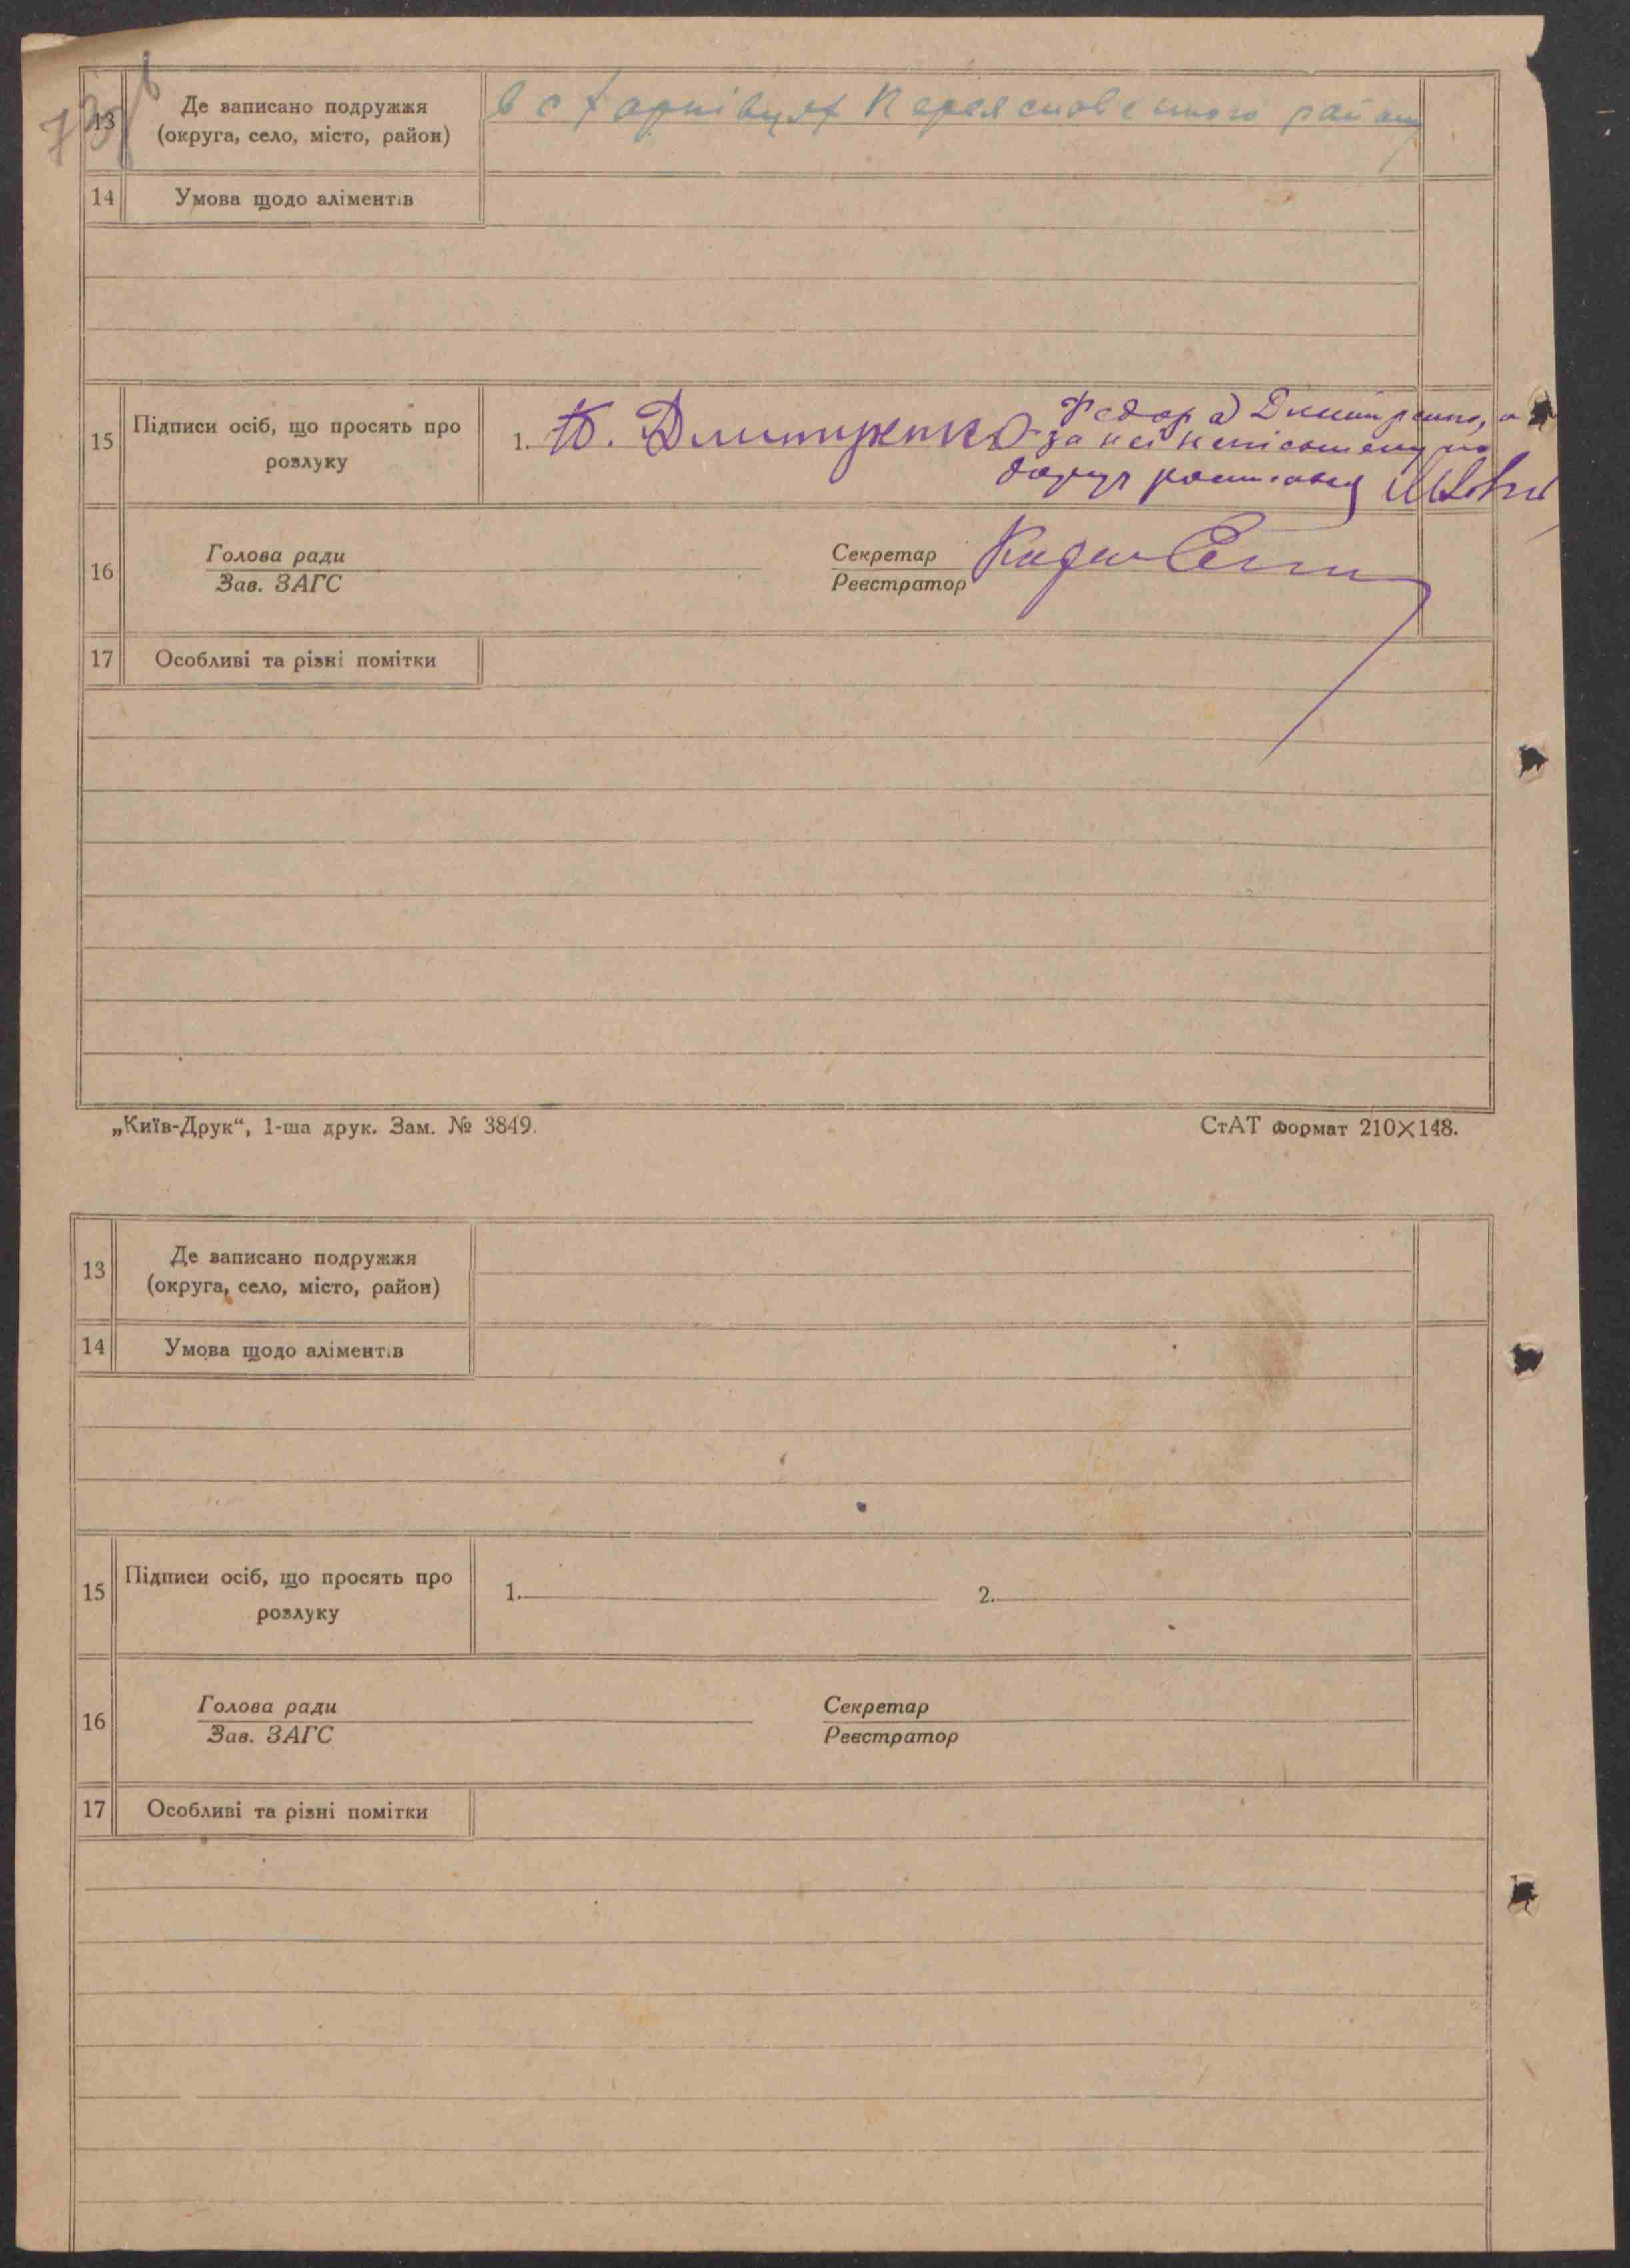 13 Де записано подружжя
(округа, село, місто, район)
в с Харківцях Переяславського району
14 Умова щодо аліментів
15 Підписи осіб, що просять про
розлуку
1. Дмитренко
Федора Дмитренко, а
за неї неписьменну по
16 Голова ради
Зав. ЗАГС
Секретар
Реєстратор
17 Особливі та різні помітки
„Київ-Друк“, 1-ша друк. Зам. № 3849.
СтАТ формат 210×148.
13 Де записано подружжя
(округа, село, місто, район)
14 Умова щодо аліментів
15 Підписи осіб, що просять про
розлуку
1. 2.
16 Голова ради
Зав. ЗАГС
Секретар
Реєстратор
17 Особливі та різні помітки